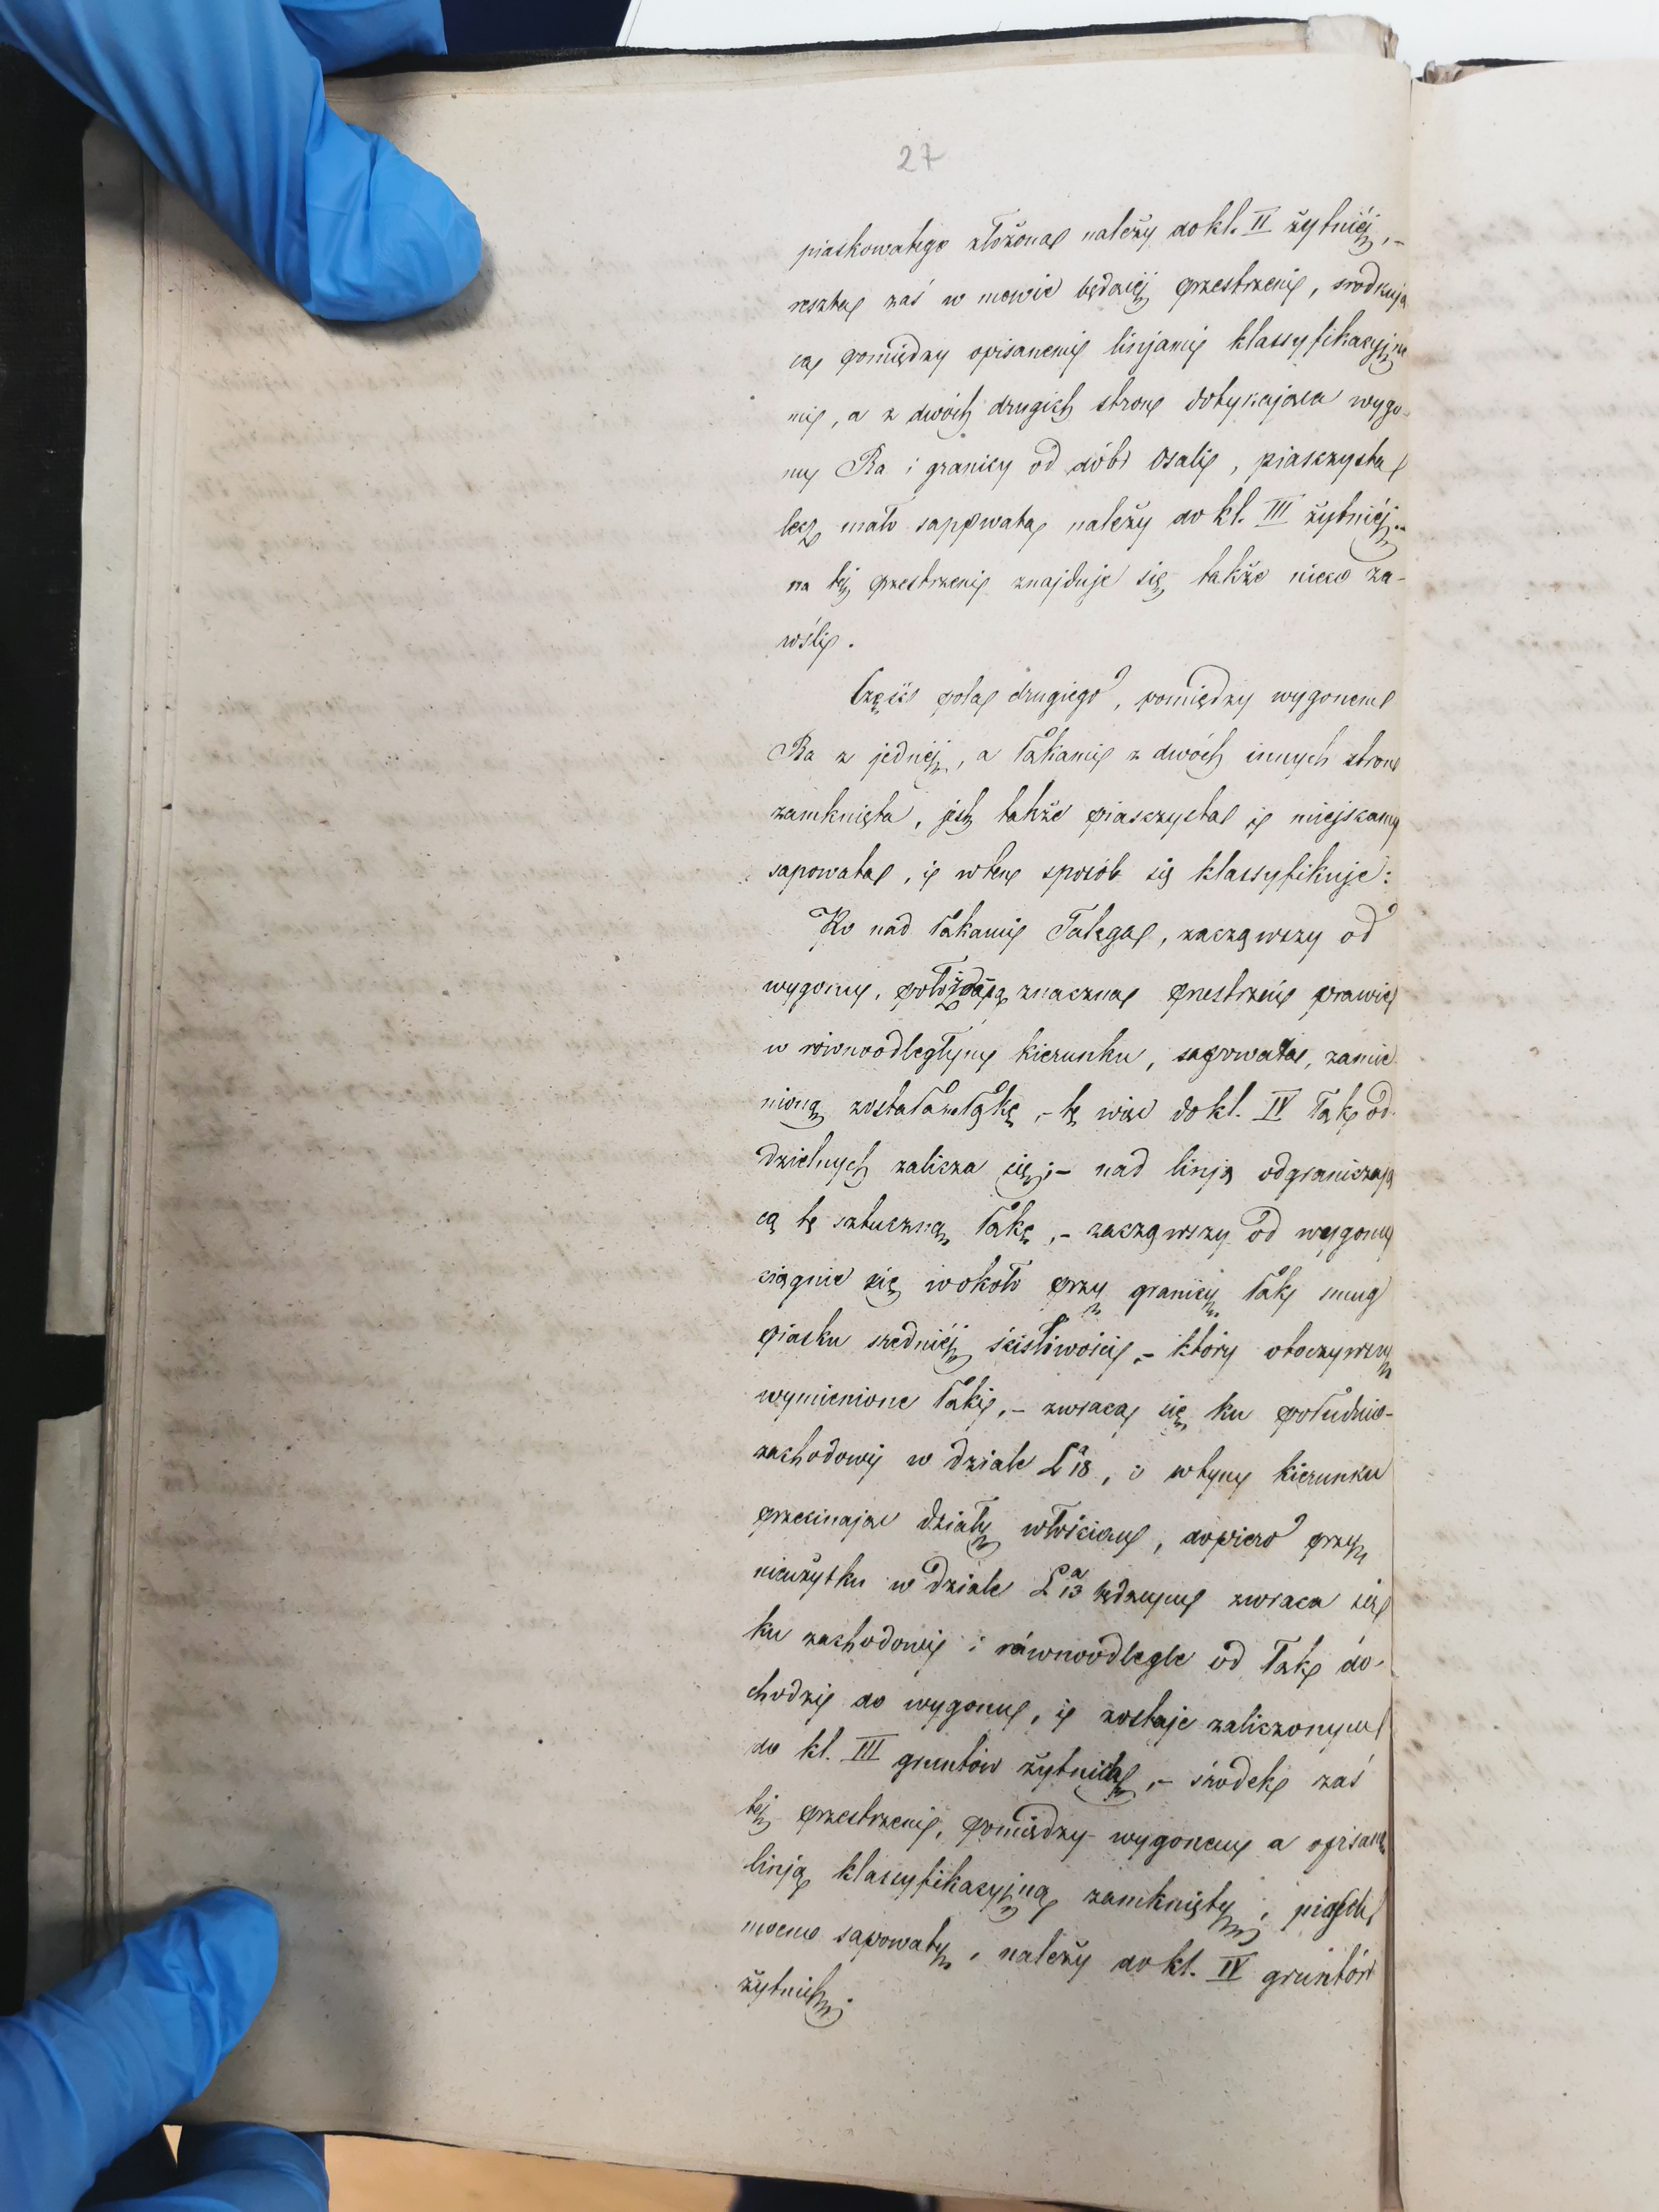 27
piaskowatego złożona należy do kl. II żytniéj, -
reszta zaś w mowie będącéj przestrzeni, środkują
ca pomiędzy opisanemi linjami klassyfikacyjne
mi, a z dwóch drugich stron dotykająca wygo-
nu Ra i granicy od dóbr Osali, piasczysta
lecz mało sapowata należy do kl. III żytniéj. -
na téj przestrzeni znajduje się także nieco za-
wśli.
Część pola drugiego, pomiędzy wygonem
Ra z jednéj, a łakami z dwóch innych stron
zamknięta, jest także piasczysta i miejscamy
sapowata, i w ten sposób się klassyfikuje:
Ko nad łakami Tałęga, zacząwszy od
wygonu, znaczna przestrzeń prawie
w równoodległym kierunku, sapowata, zamie
nioną została na łąkę, - tę więc do kl. IV łąk od-
dzielnych zalicza się; - nad linją odgraniczają
cą tę sztuczną łakę, - zacząwszy od wygonu
ciągnie się wokoło przy granicy łak smug
piasku średniéj ściśliwości, - który otoczywszy
wymienione łaki, - zwraca się ku południo-
zachodowi w dziale La 18, i w tym kierunku
przecinając działy włościan, dopiero przy
nieużytku w dziale La 13 będącym zwraca się
ku zachodowi i równoodlegle od łak do-
chodzi do wygonu, i zostaje zaliczonym
do kl. III gruntów żytnich, - środek zaś
téj przestrzeni, pomiędzy wygonem a opisaną
linją klassyfikacyjną zamknięty, piasek
mocno sapowaty, należy do kl. IV gruntów
żytnich.